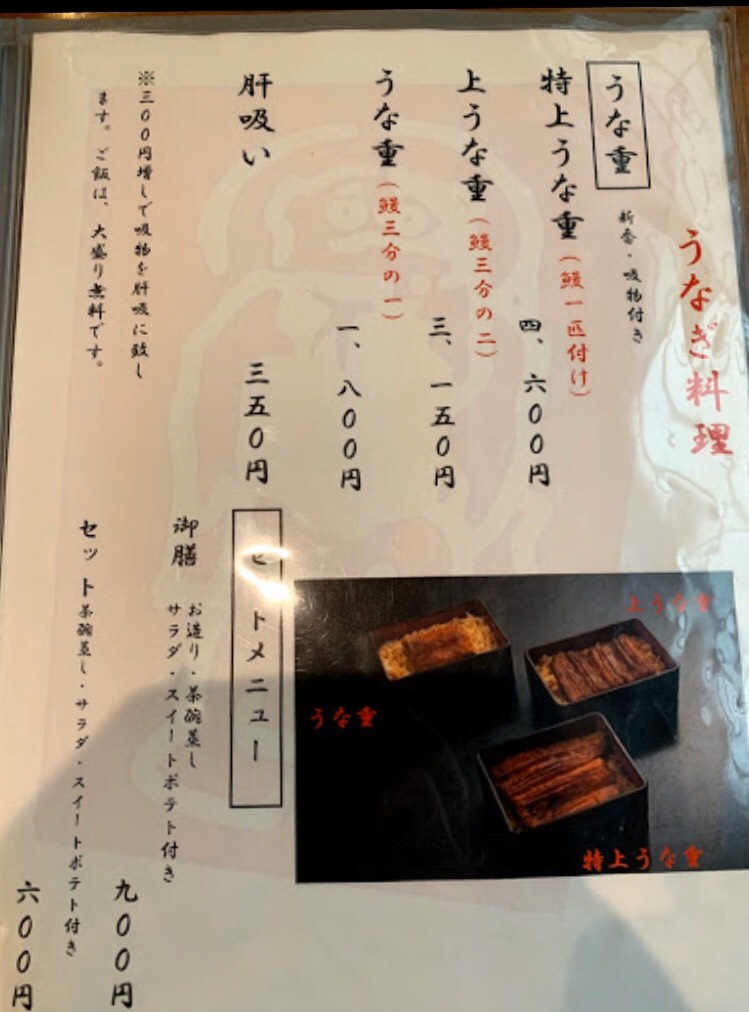 うなぎ料理
うな重 新香・吸物付き
特上うな重(鰻一匹付け) 四、六〇〇円
上うな重(鰻三分の二) 三、一五〇円
うな重(鰻三分の一) 一、八〇〇円
肝吸い 三五〇円
※三〇〇円増しで吸物を肝吸に致し
ます。ご飯は、大盛り無料です。
上うな重
うな重
特上うな重
セットメニュー
御膳 お造り・茶碗蒸し
サラダ・スイートポテト付き
九〇〇円
セット 茶碗蒸し・サラダ・スイートポテト付き
六〇〇円